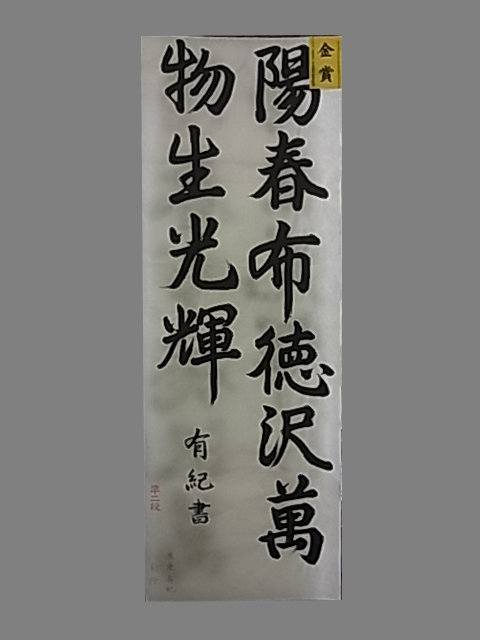 金賞
陽春布徳沢萬
物生光輝
有紀書
準二段